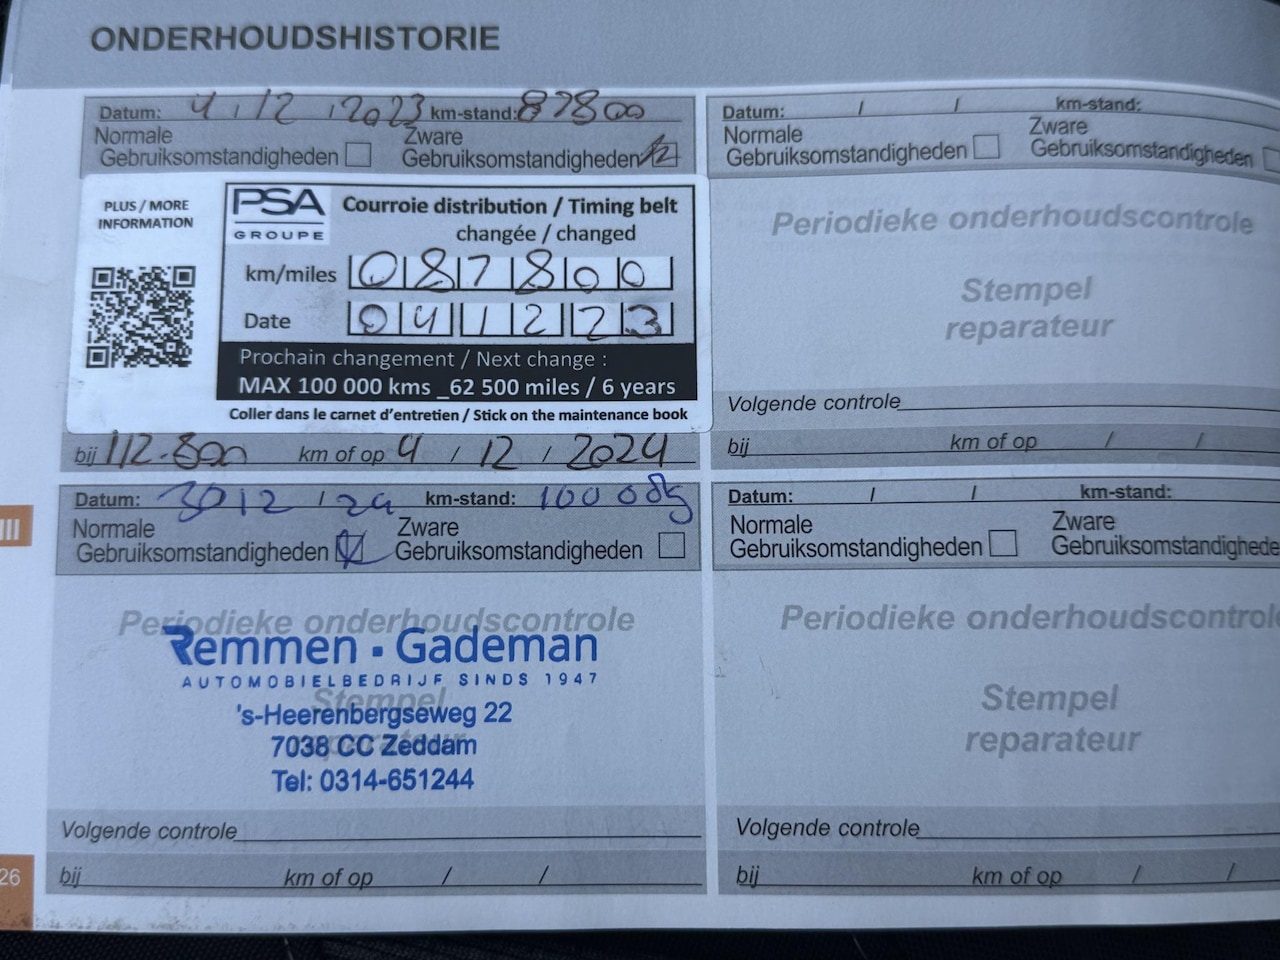 ONDERHOUDSHISTORIE
Datum: 4 / 12 / 2023 km-stand: 87800
Normale Gebruiksomstandigheden
Zware Gebruiksomstandigheden
PLUS / MORE
INFORMATION
PSA
GROUPE
Courroie distribution / Timing belt
changée / changed
km/miles 087800
Date 041223
Prochain changement / Next change :
MAX 100 000 kms _62 500 miles / 6 years
Coller dans le carnet d'entretien / Stick on the maintenance book
bij 112.800 km of op 4 / 12 / 2024
Datum: / / km-stand:
Normale Gebruiksomstandigheden
Zware Gebruiksomstandigheden
Periodieke onderhoudscontrole
Stempel
reparateur
Volgende controle
bij km of op / /
III
Datum: 3012 / 24 km-stand: 100085
Normale Gebruiksomstandigheden
Zware Gebruiksomstandigheden
Periodieke onderhoudscontrole
Remmen - Gademan
AUTOMOBIELBEDRIJF SINDS 1947
Stempel
's-Heerenbergseweg 22
reparateur
7038 CC Zeddam
Tel: 0314-651244
Volgende controle
bij km of op / /
Datum: / / km-stand:
Normale Gebruiksomstandigheden
Zware Gebruiksomstandighede
Periodieke onderhoudscontrol
Stempel
reparateur
Volgende controle
bij km of op / /
26